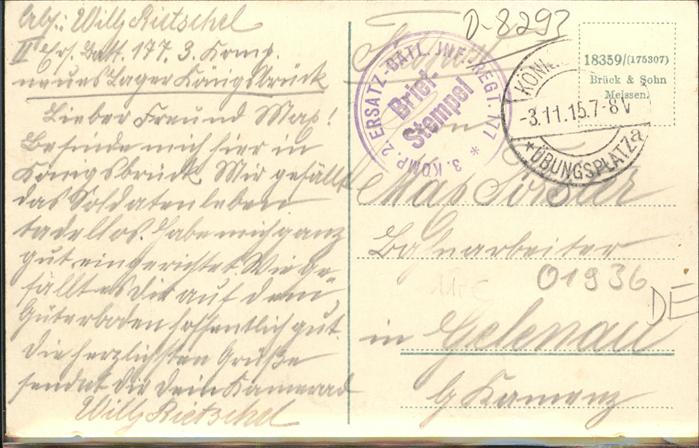 Willy Rietschel
II. Ers. Batl. 177. 3. Komp.
neues Lager Königsbrück
Lieber Freund Max!
Befinde mich hier in
Königsbrück. Mir gefällt
das Soldatenleben
tadellos. Habe mich ganz
gut eingerichtet. Wie ge-
fällt es Dir auf dem
Güterboden hoffentlich gut.
Die herzlichsten Grüße
sendet dir dein Kamerad
Willy Rietschel
D-8293
3. KOMP. 2. ERSATZ-BATL. INF. REGT. 177 *
Brief-
Stempel
18359/(175307)
Brück & Sohn
Meissen.
-3.11.15.7-8V.
*ÜBUNGSPLATZ a
Max
arbeiter
01936
DE
in Gelenau
b/ Kamenz